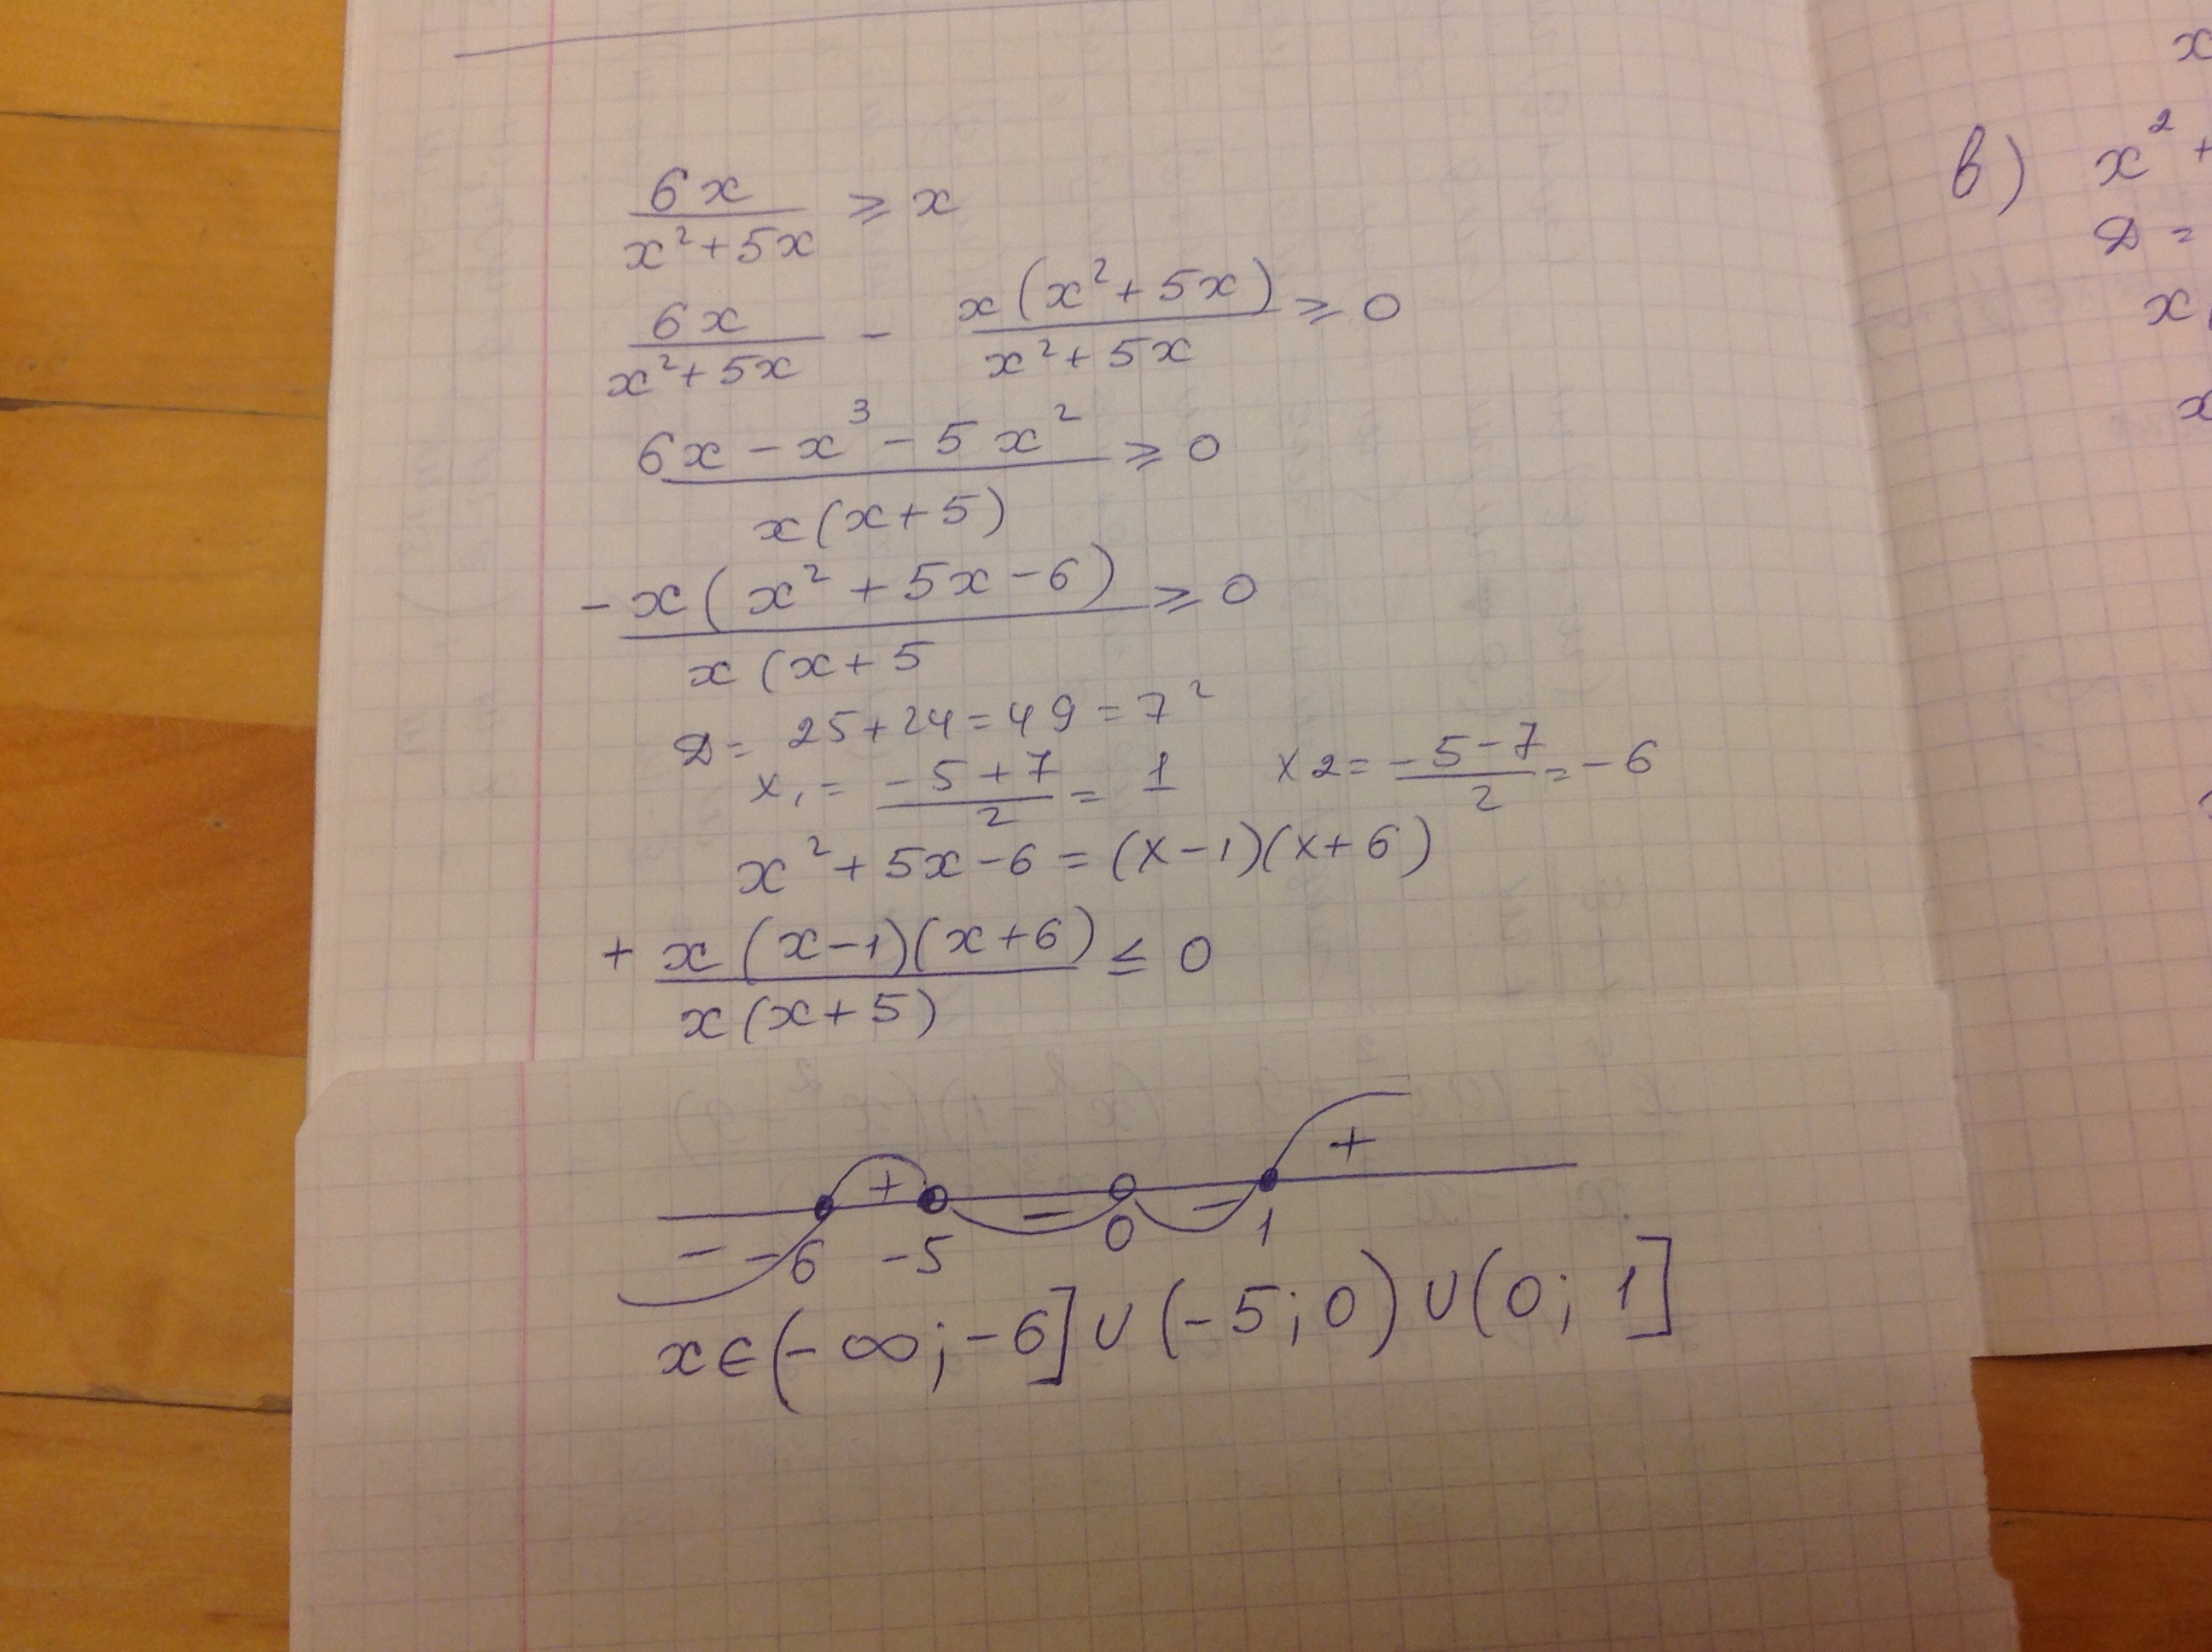 6x / (x² + 5x) ⩾ x
6x / (x² + 5x) - x(x² + 5x) / (x² + 5x) ⩾ 0
(6x - x³ - 5x²) / x(x + 5) ⩾ 0
-x(x² + 5x - 6) / x(x + 5 ⩾ 0
D = 25 + 24 = 49 = 7²
x₁ = (-5 + 7) / 2 = 1 x2 = (-5 - 7) / 2 = -6
x² + 5x - 6 = (x - 1)(x + 6)
+ x(x - 1)(x + 6) / x(x + 5) ≤ 0
+ - - +
- -6 -5 0 1
x ∈ (-∞; -6] ∪ (-5; 0) ∪ (0; 1]
x
в) x² +
D =
x
x